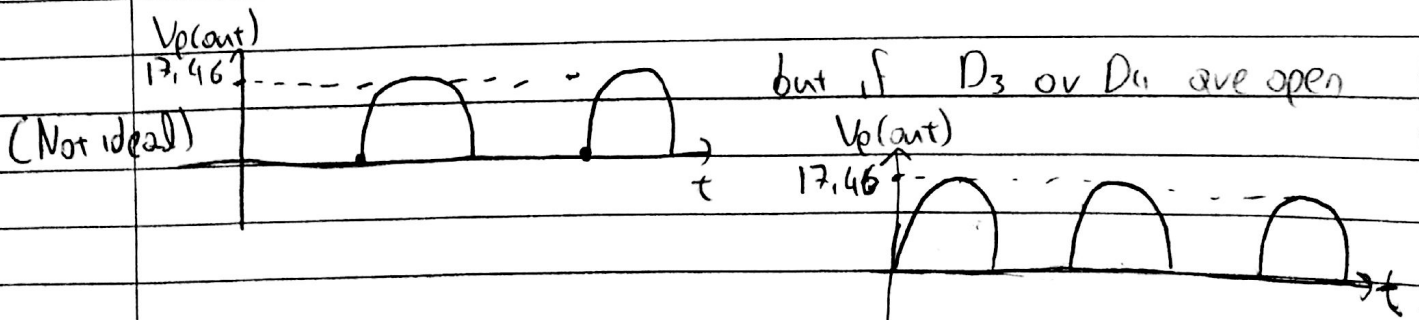 Vp(out)
17,46
(Not ideal)
t
but if D3 or D4 are open
Vp(out)
17,46
t